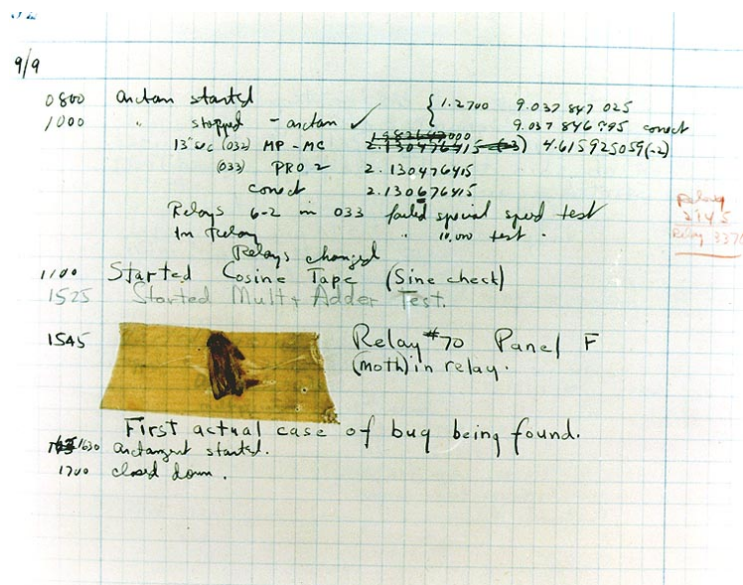 9/9
0800 arctan started
1000 " stopped - arctan ✓ { 1.2700 9.037 847 025
9.037 846 995 correct
13"uc (032) MP - MC 2.130476415 (-3) 4.615925059(-2)
(033) PRO 2 2.130476415
correct 2.130676415
Relays 6-2 in 033 failed special speed test
In Relay " 10.000 test .
Relay
2145
Relay 3370
Relays changed
1100 Started Cosine Tape (Sine check)
1525 Started Mult + Adder Test.
1545 Relay #70 Panel F
(moth) in relay.
First actual case of bug being found.
1630 arctangent started.
1700 closed down .